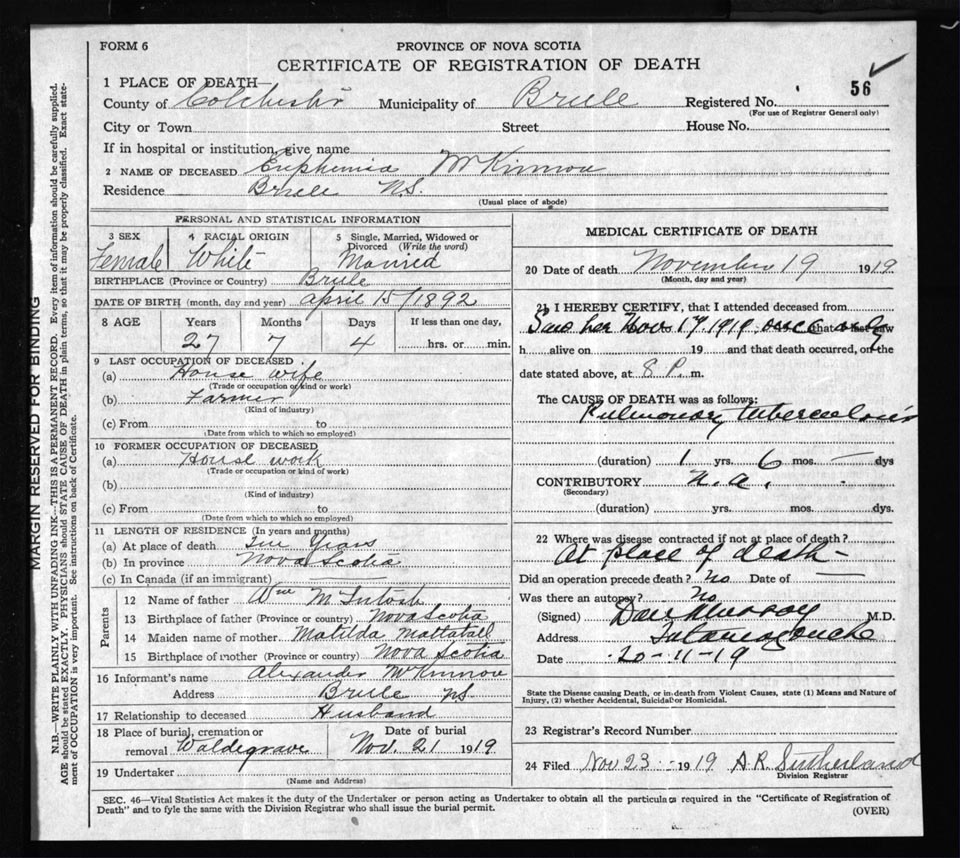 FORM 6
PROVINCE OF NOVA SCOTIA
CERTIFICATE OF REGISTRATION OF DEATH
56
1 PLACE OF DEATH—
County of Colchester Municipality of Brule Registered No.
(For use of Registrar General only)
City or Town Street House No.
If in hospital or institution, give name
2 NAME OF DECEASED Euphemia McKinnon
Residence Brule N.S.
(Usual place of abode)
PERSONAL AND STATISTICAL INFORMATION
3 SEX 4 RACIAL ORIGIN 5 Single, Married, Widowed or
Divorced (Write the word)
Female White Married
BIRTHPLACE (Province or Country) Brule
DATE OF BIRTH (month, day and year) April 15/1892
8 AGE Years Months Days If less than one day,
27 7 4 hrs. or min.
9 LAST OCCUPATION OF DECEASED
(a) House wife
(Trade or occupation or kind or work)
(b) Farmer
(Kind of industry)
(c) From to
(Date from which to which so employed)
10 FORMER OCCUPATION OF DECEASED
(a) House work
(Trade or occupation or kind of work)
(b)
(Kind of industry)
(c) From to
(Date from which to which so employed)
11 LENGTH OF RESIDENCE (In years and months)
(a) At place of death Years
(b) In province Nova Scotia
(c) In Canada (if an immigrant)
Parents
12 Name of father Wm McIntosh
13 Birthplace of father (Province or country) Nova Scotia
14 Maiden name of mother Matilda Mattatall
15 Birthplace of mother (Province or country) Nova Scotia
16 Informant's name Alexander McKinnon
Address Brule N.S.
17 Relationship to deceased Husband
18 Place of burial, cremation or Date of burial
removal Waldegrave Nov. 21 1919
19 Undertaker
(Name and Address)
MEDICAL CERTIFICATE OF DEATH
20 Date of death November 19 1919
(Month, day and year)
21 I HEREBY CERTIFY, that I attended deceased from
her Nov 1919 once only that I last saw
h alive on 19 and that death occurred, on the
date stated above, at 8 P. m.
The CAUSE OF DEATH was as follows:
Pulmonary tuberculosis
(duration) 1 yrs. 6 mos. — dys
CONTRIBUTORY n.a.
(Secondary)
(duration) yrs. mos. dys.
22 Where was disease contracted if not at place of death?
At place of death —
Did an operation precede death? No Date of —
Was there an autopsy? No
(Signed) Dan Murray M.D.
Address Tatamagouche
Date 20-11-19
State the Disease causing Death, or in death from Violent Causes, state (1) Means and Nature of
Injury, (2) whether Accidental, Suicidal or Homicidal.
23 Registrar's Record Number
24 Filed Nov 23 1919 A.R. Sutherland
Division Registrar
SEC. 46—Vital Statistics Act makes it the duty of the Undertaker or person acting as Undertaker to obtain all the particulars required in the "Certificate of Registration of
Death" and to fyle the same with the Division Registrar who shall issue the burial permit.
(OVER)
MARGIN RESERVED FOR BINDING
N.B.—WRITE PLAINLY WITH UNFADING INK—THIS IS A PERMANENT RECORD. Every item of information should be carefully supplied.
AGE should be stated EXACTLY. PHYSICIANS should STATE CAUSE OF DEATH in plain terms, so that it may be properly classified. Exact state-
ment of OCCUPATION is very important. See instructions on back of Certificate.